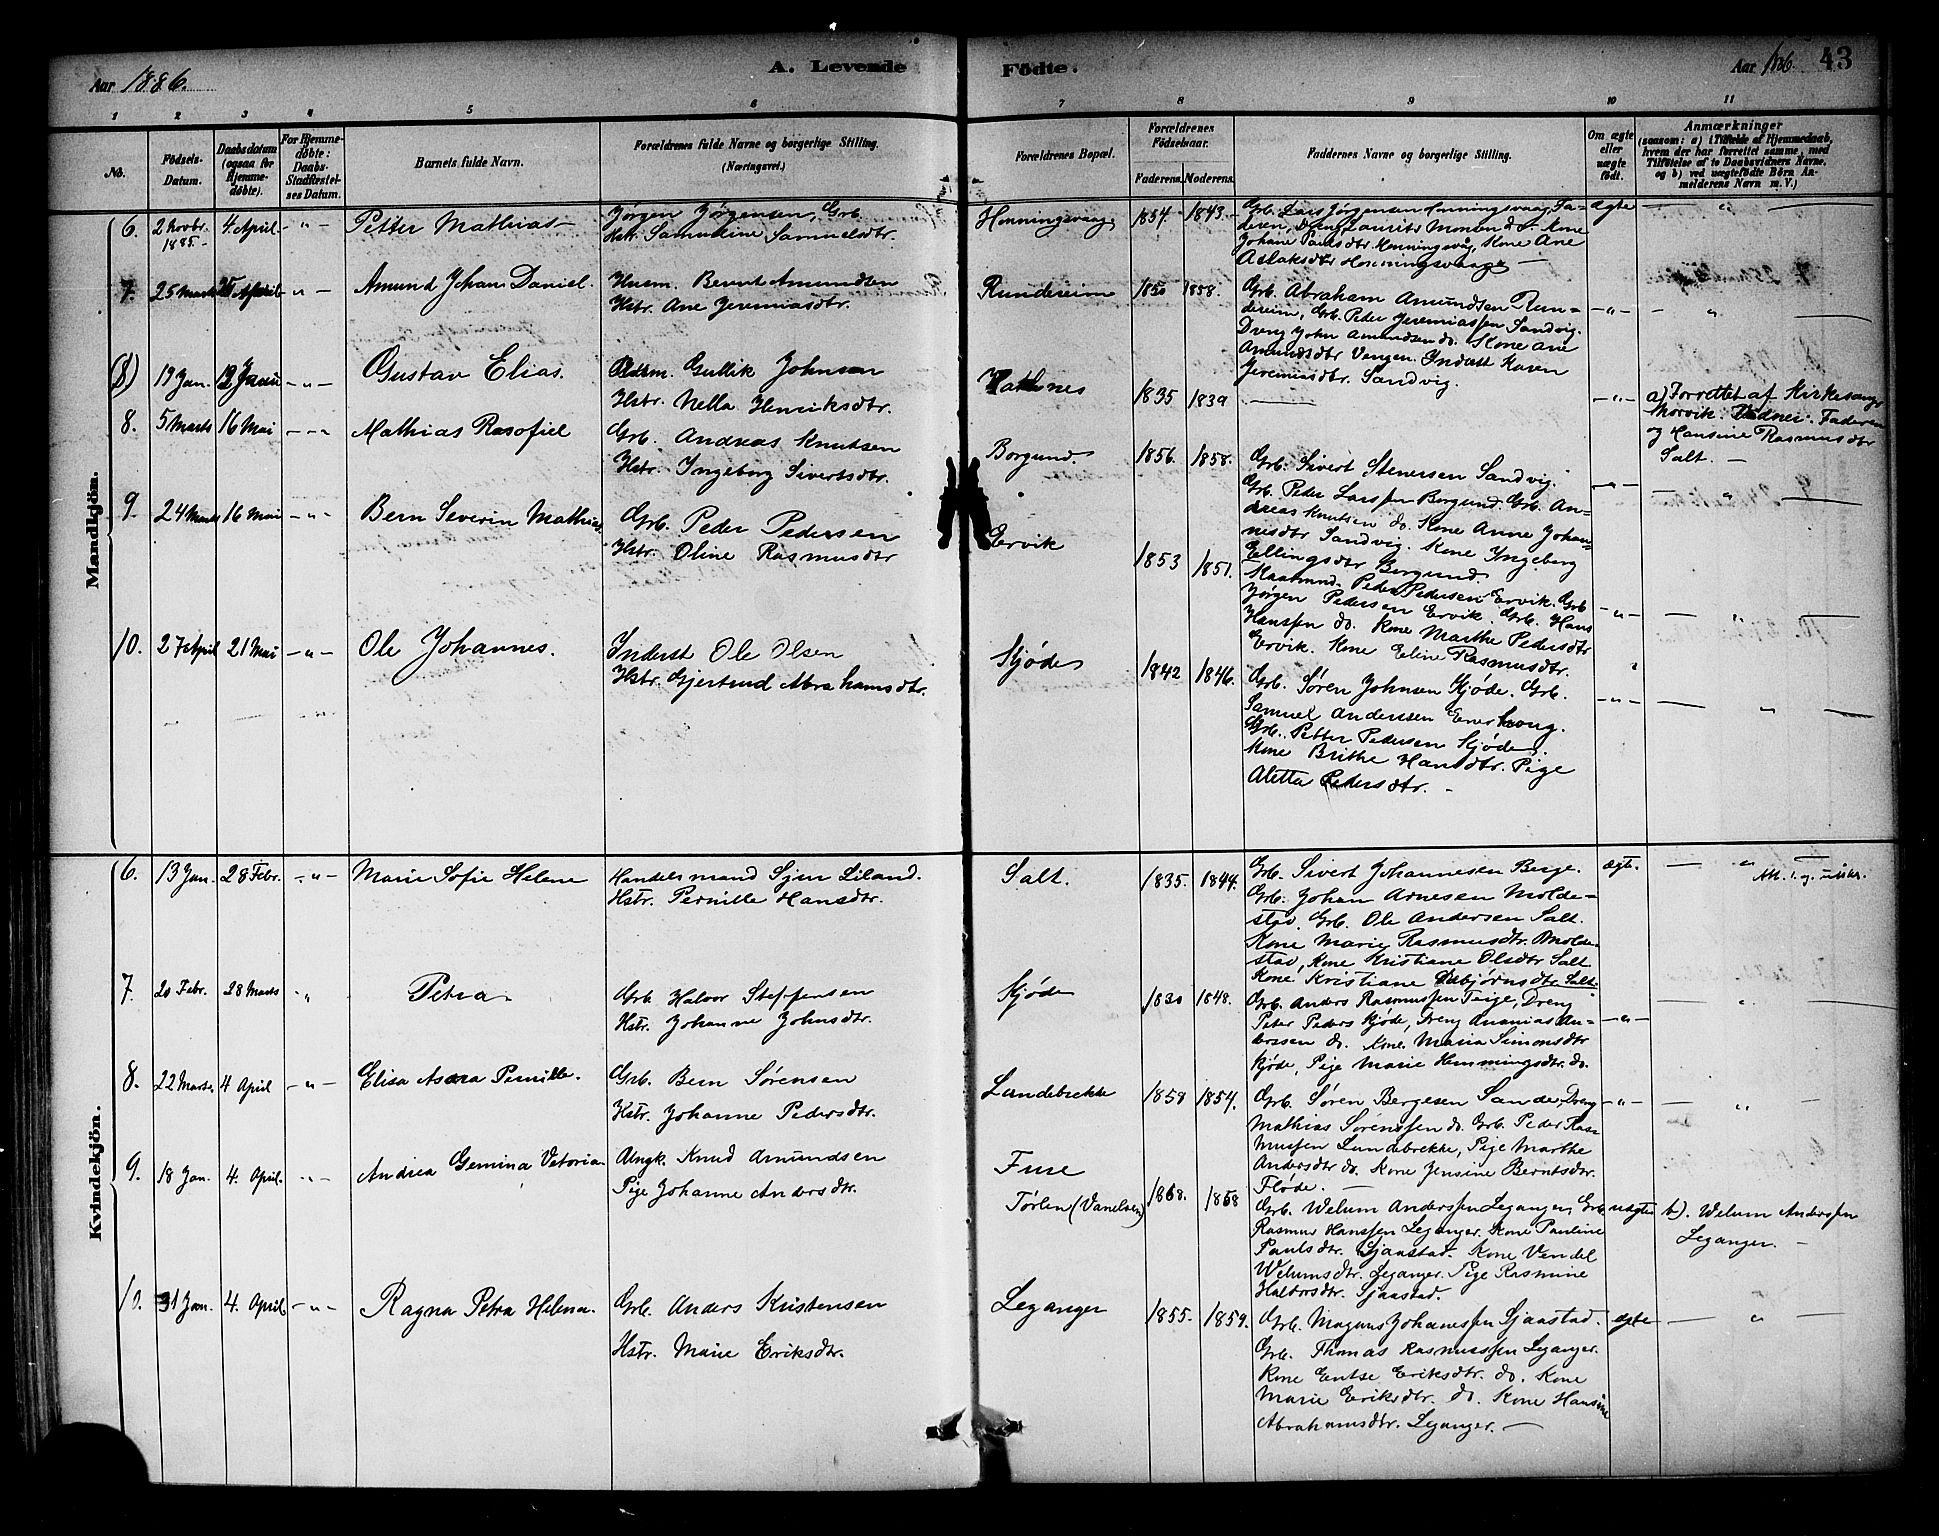 Aar 1886.
A. Levende
Födte.
Aar 1886. 43
1 2 3 4 5 6 7 8 9 10 11
No.
Födsels-Datum.
Daabsdatum (ogsaa for Hjemmedøbte).
For Hjemmedøbte: Daabs Stadfæstelses Datum.
Barnets fulde Navn.
Forældrenes fulde Navne og borgerlige Stilling.
(Næringsvei.)
Forældrenes Bopæl.
Forældrenes Födselsaar.
Faderens. Moderens.
Faddernes Navne og borgerlige Stilling.
Om ægte eller uægte født.
Anmærkninger
(saasom: a) Tilfælde af Hjemmedaab, hvem der har forrettet samme, med Tilføielse af to Daabsvidners Navne, og b) ved uægtefødte Börn Anmelderens Navn m. V.)
Mandkjön.
6. 2 Novbr. 1885. 4. April -"- Petter Mathias
Jørgen Jørgensen, Grb.
Hstr. Samueline Samuelsdtr.
Henningsvaag 1854. 1843.
Grb. Lars Jørgensen Henningsvaag, Fa-
deren, Dreng Laurits Monsen do. Kone
Johane Paulsdtr. Henningsvåg, Kone Ane
Aslaksdtr Henningsvaag
ægte "
7. 25 Marts 25 April -"- Amund Johan Daniel.
Husm. Bernt Amundsen
Hstr. Ane Jeremiasdtr.
Rundereim 1850 1858.
Grb. Abraham Amundsen Run-
dereim, Grb. Peder Jeremiassen Sandvig.
Dreng John Amundsen do. Kone Ane
Amundsdtr Vengen. Karen
Jeremiasdtr. Sandvig.
-"- "
(8) 19 Jan. -"- Gustav Elias.
Gullik Johnsen
Hstr. Nella Henriksdtr.
1835 1839
-"- a) Forrettet af Kirkesanger
Morvik. Vidner: Faderen
og Hansine Rasmusdtr
Salt.
8. 5 Marts 16 Mai -"- Mathias Rasofiel
Grb. Andreas Knutsen
Hstr. Ingeborg Sivertsdtr.
Borgund. 1856. 1858.
Grb. Sivert Stenersen Sandvig.
Grb. Peder Larssen Borgund. Grb. An-
dreas Knutsen do. Kone Anne Johan-
nesdtr Sandvig. Kone Ingeborg
Ellingsdtr Borgund.
-"- "
9. 24 Marts 16 Mai -"- Bern Severin Mathias
Grb. Peder Pedersen
Hstr. Oline Rasmusdtr
Ervik 1853 1851.
Peder Pedersen Ervik. Grb
Jørgen Pedersen Ervik. Grb. Hans
Hanssen do. Kone Marthe Pedersdtr
Ervik. Kone Eline Rasmusdtr.
-"- "
10. 27 April 21 Mai -"- Ole Johannes.
Inderst Ole Olsen
Hstr. Gjertrud Abrahamsdtr.
Skjøde 1842 1846.
Grb. Søren Johnsen Kjøde. Grb.
Samuel Anderssen
Grb. Petter Pedersen Kjøde.
Kone Brithe Hansdtr. Pige
Aletta Pedersdtr.
-"- "
Kvindekjön.
6. 13 Jan. 28 Febr. -"- Marie Sofie Helene
Handelsmand Sjur Liland.
Hstr. Pernille Hansdtr.
Salt. 1835. 1844.
Grb. Sivert Johannesen Berge.
Grb. Johan Arnesen Molde-
stad, Grb. Ole Andersen Salt.
Kone Marie Rasmusdtr. Molde-
stad, Kone Kristiane Olsdtr Salt
Kone Kristiane Salt.
ægte. "
7. 20 Febr. 28 Marts " Petra
Grb. Halvor Steffensen
Hstr. Johanne Johnsdtr.
Kjøde 1830 1848.
Grb. Anders Rasmussen Teige, Dreng
Peter Peders Kjøde, Dreng Ananias An-
derssen do. Kone Maria Simonsdtr
Kjøde, Pige Marie Hemmingsdtr. do.
-"- "
8. 22 Marts 4 April -"- Elisa Pernille.
Grb. Bern Sørensen
Hstr. Johanne Pedersdtr.
Lundebrekke 1859 1854.
Grb. Søren Bergesen Sande, Dreng
Mathias Sørenssen do. Grb. Peder Ras-
mussen Lundebrekke, Pige Marthe
Andersdtr do. Kone Jensine Berntsdtr.
Fløde.
-"- "
9. 18 Jan. 4. April. -"- Andrea Gemina Vetoria
Ungk. Knud Amundsen
Pige Johanne Andersdtr.
Fure
Tørlen (Vanelven) 1868. 1868
Grb. Welum Anderssen Leganger, Grb
Rasmus Hanssen Leganger. Kone Pauline
Paulsdtr. Sjaastad. Kone Vendel
Welumsdtr. Leganger. Pige Rasmine
Halvorsdtr. Sjaastad.
uægte b). Welum Anderssen
Leganger.
10. 31 Jan. 4. April -"- Ragna Petra Helena.
Grb. Anders Kristensen
Hstr. Marie Eriksdtr.
Leganger 1855. 1859.
Grb. Magnus Johanessen Sjaastad.
Grb. Thomas Rasmussen Leganger.
Kone Entse Eriksdtr. do. Kone
Marie Eriksdtr. do. Kone Hansine
Abrahamsdtr. Leganger.
ægte "